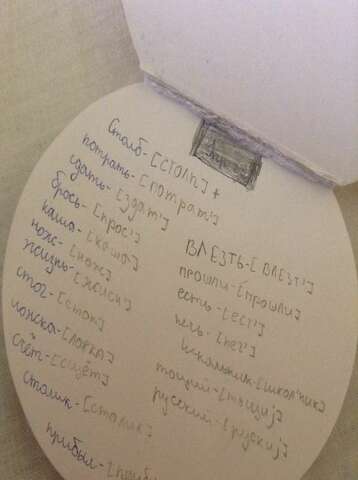 Столб-[столп] +
потрать-[потрат']
сдать-[здат']
брось-[брос']
каша-[каша]
нож-[нож]
жизнь-[жизн']
стог-[сток]
счёт-[сщёт]
столик-[столик]
прибыл-
ВЛЕЗТЬ-[ВЛЕЗТ']
прошли-[прошли]
есть-[ест']
печь-[печ']
школьник-[школ'ник]
тощий-[тощий]
русский-[руский]